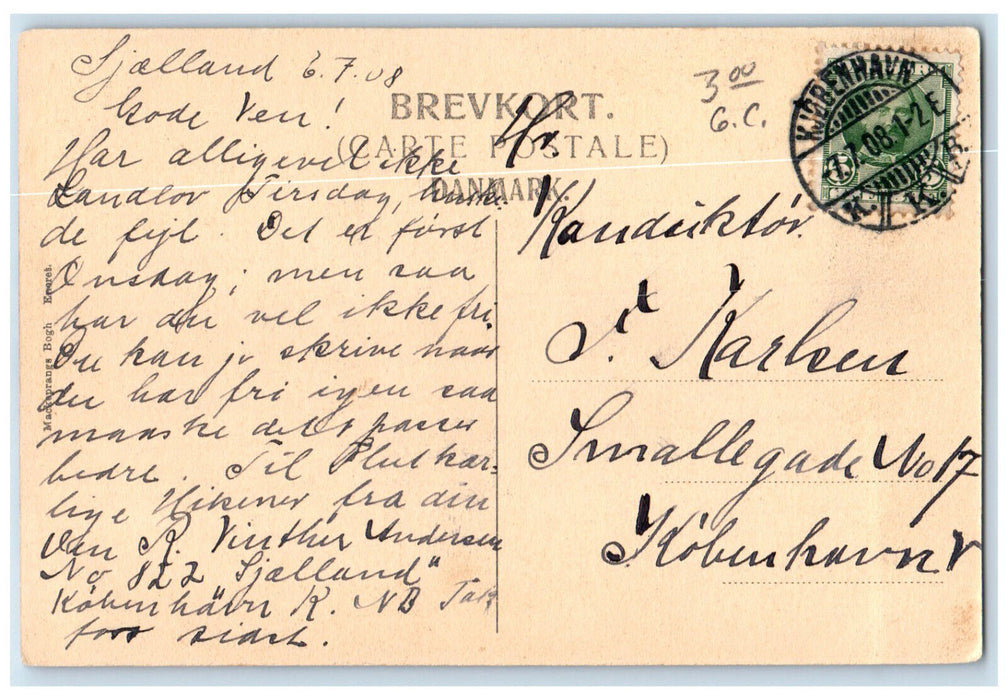 Sjælland 6.7.08
Gode Ven!
Har alligevel ikke
Landlov Tirsdag,
de fejl. Det er først
Onsdag; men saa
har du vel ikke fri.
Du kan jo skrive naar
du har fri igen saa
maaske det passer
bedre. Til Slut kær-
lige Hilsener fra din
Ven R. Vinther Andersen
No 822 "Sjælland"
København K. NB Tak
for sidst.
BREVKORT.
(CARTE POSTALE)
DANMARK.
Mackeprangs Bogh Eneret.
3 00
G.C.
KJØBENHAVN
7.7.08. 1-2 E
K. K.
5 5
Hr.
Konduktør
Karlsen
Smallegade No 17
København